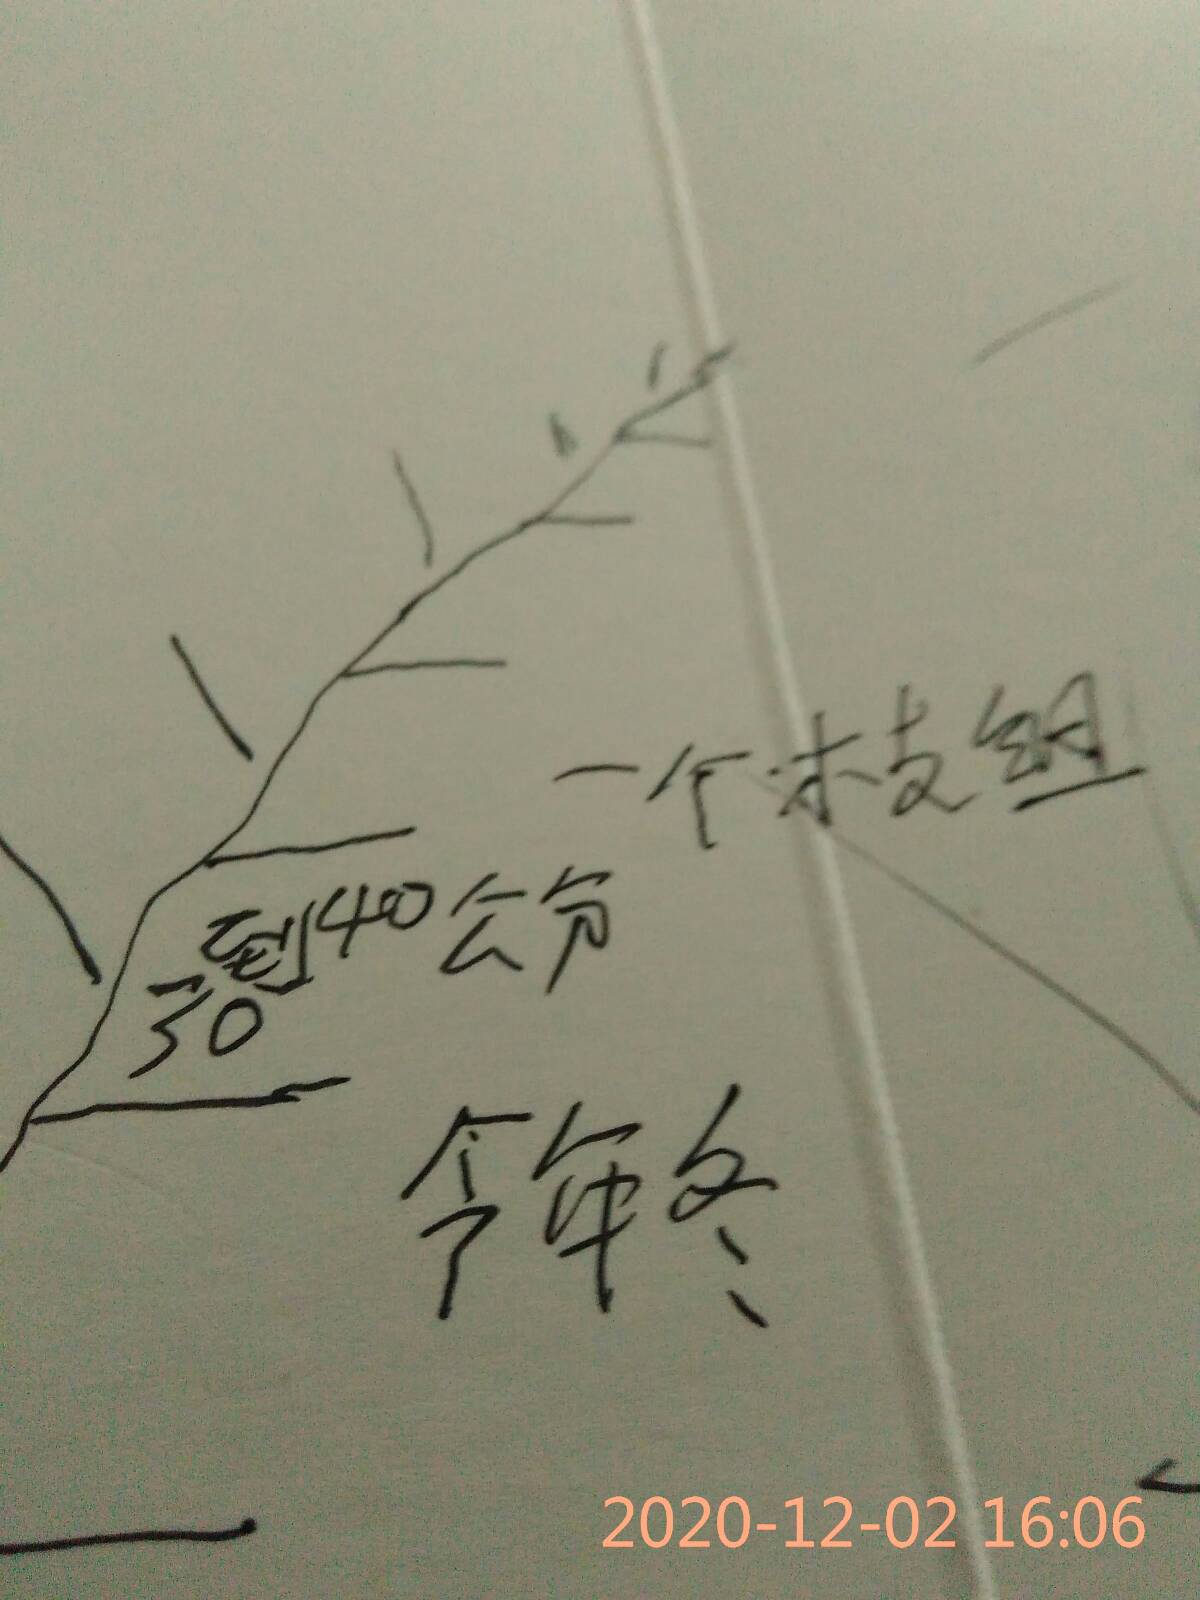 一个枝组
30到40公分
今年冬
2020-12-02 16:06